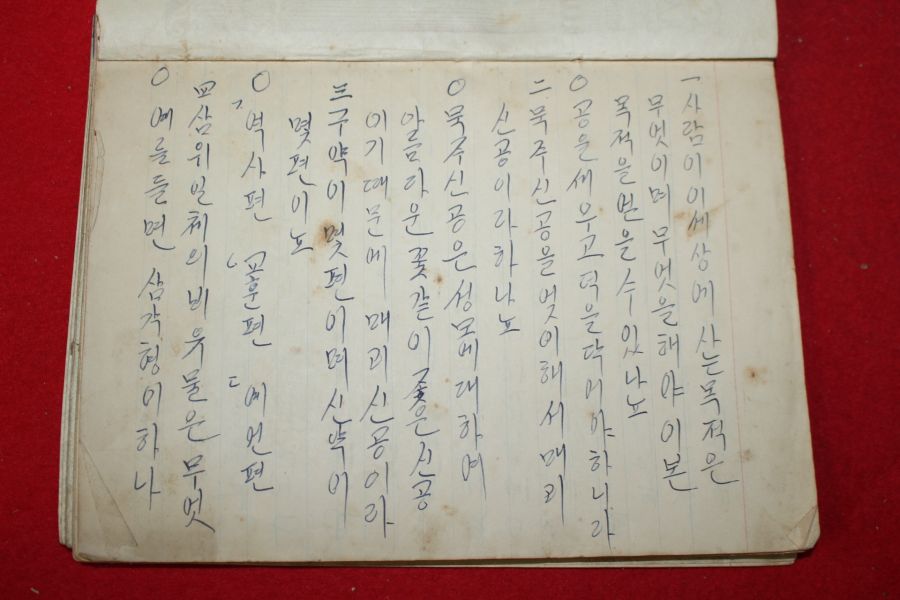 一 사람이 이세상에 사는 목적은
무엇이며 무엇을 해야 이 본
목적을 얻을 수 있나뇨
○ 공을 세우고 덕을 닥어야 하니라
二 묵주신공을 엇이해서 매괴
신공이라 하나뇨
○ 묵주신공은 성모께 대하여
알음다운 꽃같이 좋은 신공
이기 때문에 매괴신공이라
三 구약이 몇편이며 신약이
몇편이뇨
○ 역사편 교훈편 예언편
四 삼위일체의 비유물은 무엇
○ 예를 들면 삼각형이 하나